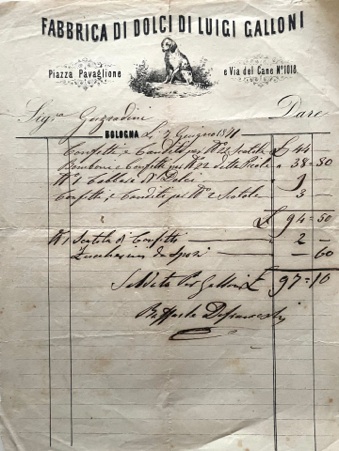 FABBRICA DI DOLCI DI LUIGI GALLONI
Piazza Pavaglione e Via del Cane N° 1018
Sig.ra Gozzadini Dare
BOLOGNA Li 2 Giugno 18
Confetti e Canditi per N° 22 Scatole £ 44
Bomboni e Confetti per N° 22 dette 38=50
N° 1
Confetti, e Canditi per N° 2 Scatole 3
" £ 94=50
N° 1 Scatola di Confetti 2 —
Zuccherini da Sposi — 60
Saldato Per Galloni £ 97=10
Raffaele